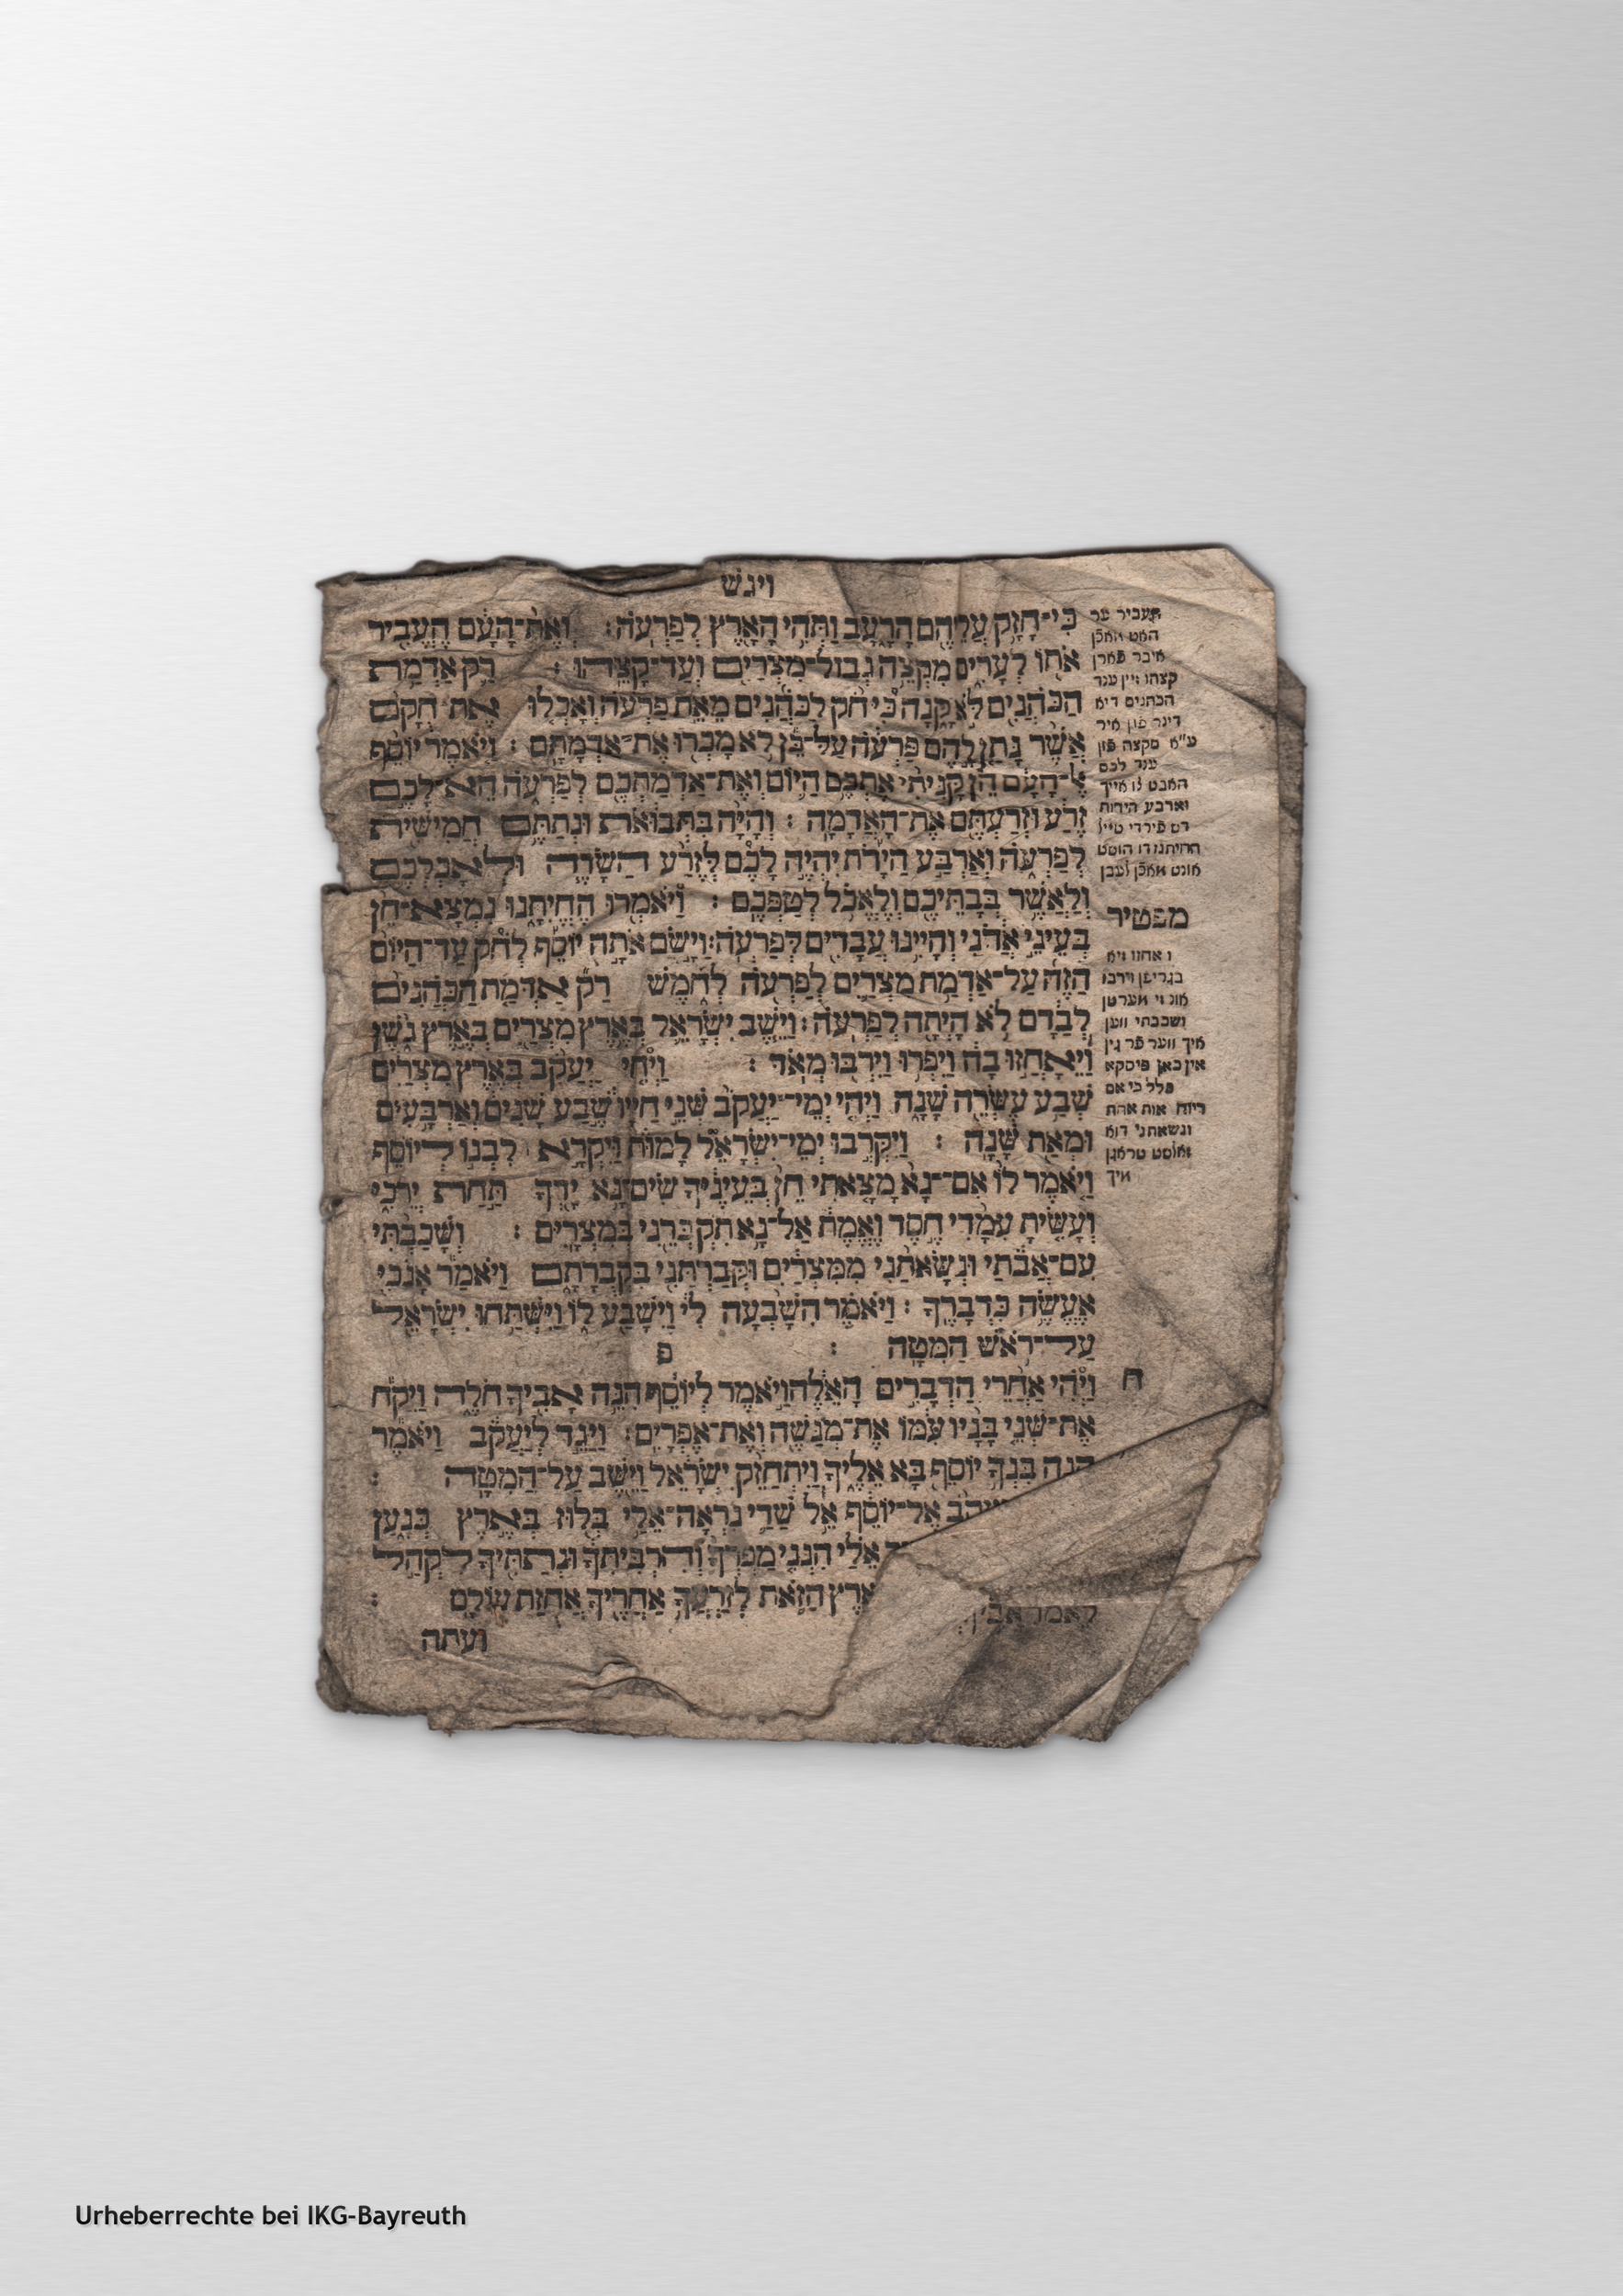 ויגש
כִּי־חָזַק עֲלֵהֶם הָרָעָב וַתְּהִי הָאָרֶץ לְפַרְעֹה: וְאֶת־הָעָם הֶעֱבִיר
אֹתוֹ לֶעָרִים מִקְצֵה גְבוּל־מִצְרַיִם וְעַד־קָצֵהוּ: רַק אַדְמַת
הַכֹּהֲנִים לֹא קָנָה כִּי חֹק לַכֹּהֲנִים מֵאֵת פַּרְעֹה וְאָכְלוּ אֶת חֻקָּם
אֲשֶׁר נָתַן לָהֶם פַּרְעֹה עַל־כֵּן לֹא מָכְרוּ אֶת־אַדְמָתָם: וַיֹּאמֶר יוֹסֵף
אֶל־הָעָם הֵן קָנִיתִי אֶתְכֶם הַיּוֹם וְאֶת־אַדְמַתְכֶם לְפַרְעֹה הֵא־לָכֶם
זֶרַע וּזְרַעְתֶּם אֶת־הָאֲדָמָה: וְהָיָה בַּתְּבוּאֹת וּנְתַתֶּם חֲמִישִׁית
לְפַרְעֹה וְאַרְבַּע הַיָּדֹת יִהְיֶה לָכֶם לְזֶרַע הַשָּׂדֶה וּלְאָכְלְכֶם
וְלַאֲשֶׁר בְּבָתֵּיכֶם וְלֶאֱכֹל לְטַפְּכֶם: וַיֹּאמְרוּ הֶחֱיִתָנוּ נִמְצָא־חֵן
בְּעֵינֵי אֲדֹנִי וְהָיִינוּ עֲבָדִים לְפַרְעֹה: וַיָּשֶׂם אֹתָהּ יוֹסֵף לְחֹק עַד־הַיּוֹם
הַזֶּה עַל־אַדְמַת מִצְרַיִם לְפַרְעֹה לַחֹמֶשׁ רַק אַדְמַת הַכֹּהֲנִים
לְבַדָּם לֹא הָיְתָה לְפַרְעֹה: וַיֵּשֶׁב יִשְׂרָאֵל בְּאֶרֶץ מִצְרַיִם בְּאֶרֶץ גֹּשֶׁן
וַיֵּאָחֲזוּ בָהּ וַיִּפְרוּ וַיִּרְבּוּ מְאֹד: וַיְחִי יַעֲקֹב בְּאֶרֶץ מִצְרַיִם
שְׁבַע עֶשְׂרֵה שָׁנָה וַיְהִי יְמֵי־יַעֲקֹב שְׁנֵי חַיָּיו שֶׁבַע שָׁנִים וְאַרְבָּעִים
וּמְאַת שָׁנָה: וַיִּקְרְבוּ יְמֵי־יִשְׂרָאֵל לָמוּת וַיִּקְרָא לִבְנוֹ לְיוֹסֵף
וַיֹּאמֶר לוֹ אִם־נָא מָצָאתִי חֵן בְּעֵינֶיךָ שִׂים־נָא יָדְךָ תַּחַת יְרֵכִי
וְעָשִׂיתָ עִמָּדִי חֶסֶד וֶאֱמֶת אַל־נָא תִקְבְּרֵנִי בְּמִצְרָיִם: וְשָׁכַבְתִּי
עִם־אֲבֹתַי וּנְשָׂאתַנִי מִמִּצְרַיִם וּקְבַרְתַּנִי בִּקְבֻרָתָם וַיֹּאמַר אָנֹכִי
אֶעֱשֶׂה כִדְבָרֶךָ: וַיֹּאמֶר הִשָּׁבְעָה לִי וַיִּשָּׁבַע לוֹ וַיִּשְׁתַּחוּ יִשְׂרָאֵל
עַל־רֹאשׁ הַמִּטָּה: פ
וַיְהִי אַחֲרֵי הַדְּבָרִים הָאֵלֶּה וַיֹּאמֶר לְיוֹסֵף הִנֵּה אָבִיךָ חֹלֶה וַיִּקַּח
אֶת־שְׁנֵי בָנָיו עִמּוֹ אֶת־מְנַשֶּׁה וְאֶת־אֶפְרָיִם: וַיַּגֵּד לְיַעֲקֹב וַיֹּאמֶר
הִנֵּה בִּנְךָ יוֹסֵף בָּא אֵלֶיךָ וַיִּתְחַזֵּק יִשְׂרָאֵל וַיֵּשֶׁב עַל־הַמִּטָּה:
אֶל־יוֹסֵף אֵל שַׁדַּי נִרְאָה־אֵלַי בְּלוּז בְּאֶרֶץ כְּנָעַן
אֵלַי הִנְנִי מַפְרְךָ וְהִרְבִּיתִךָ וּנְתַתִּיךָ לִקְהַל
הַזֹּאת לְזַרְעֲךָ אַחֲרֶיךָ אֲחֻזַּת עוֹלָם:
ועתה
העביר ער
איבר פארן
הכהנים דיא
דינר פון איר
ע"א מקצה פון
ענד לכם
וארבע הידות
מפטיר
ושכבתי ווען
אין כאן פיסקא
כלל כי אם
ריוח אות אחת
ונשאתני דוא
איך
ח
Urheberrechte bei IKG-Bayreuth